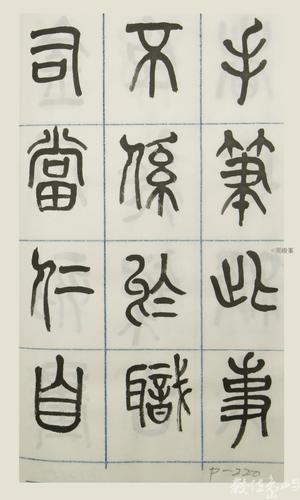 手筆此事
不係於職
司當仁自
P-220